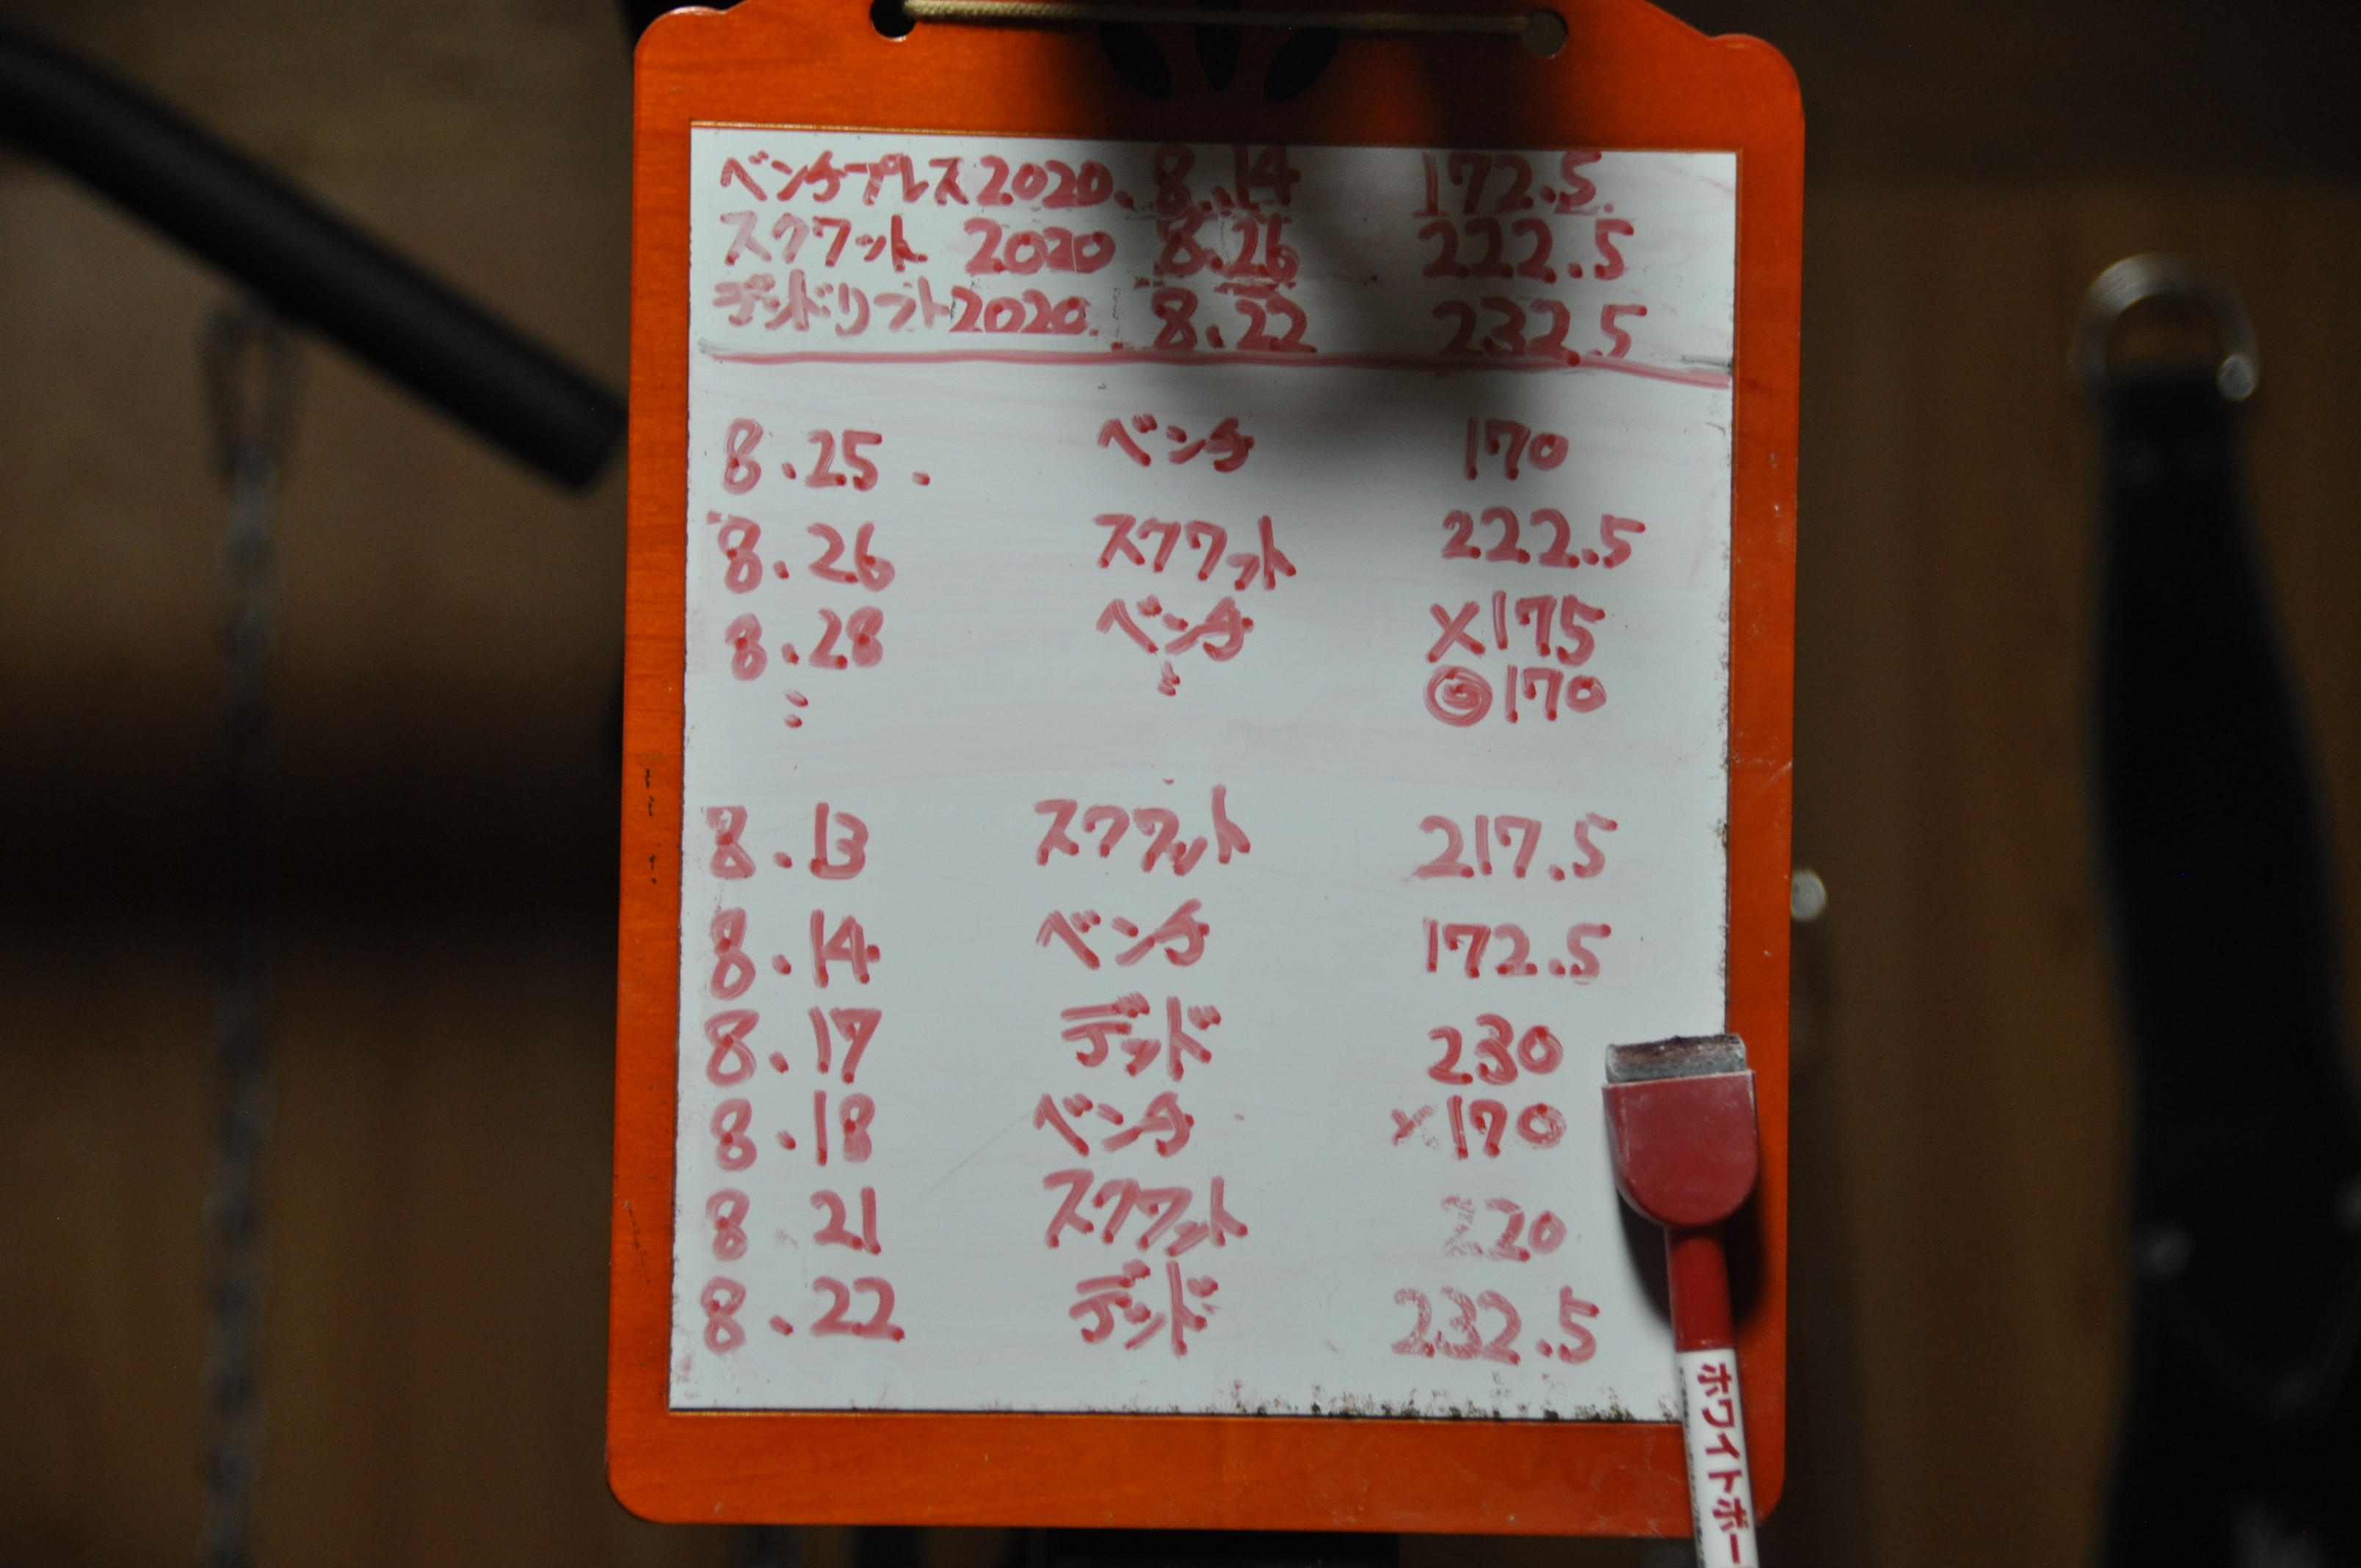 ベンチプレス 2020. 8.14 172.5
スクワット 2020 8.26 222.5
デッドリフト 2020. 8.22 232.5
8.25. ベンチ 170
8.26 スクワット 222.5
8.28 ベンチ ×175
◎170
8.13 スクワット 217.5
8.14 ベンチ 172.5
8.17 デッド 230
8.18 ベンチ ×170
8 21 スクワット 220
8.22 デッド 232.5
ホワイトボー